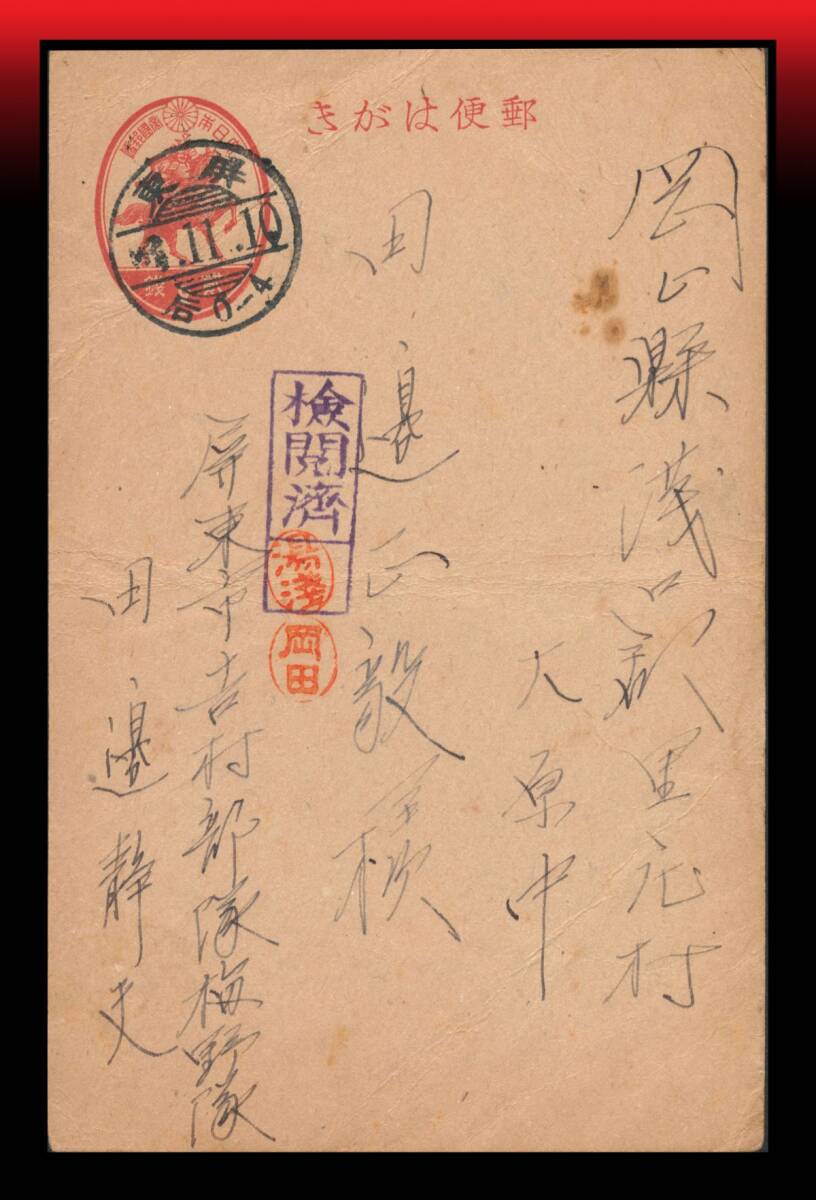 郵便はがき
岡山縣淺口郡里庄村
大原中
田邉正毅樣
屏東市吉村部隊梅野隊
田邊靜夫
檢閲濟
湯淺
岡田
屏東
.11.10
0-4